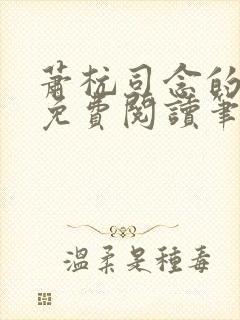 蕭杭司念的
免費閱讀筆
溫柔是種毒